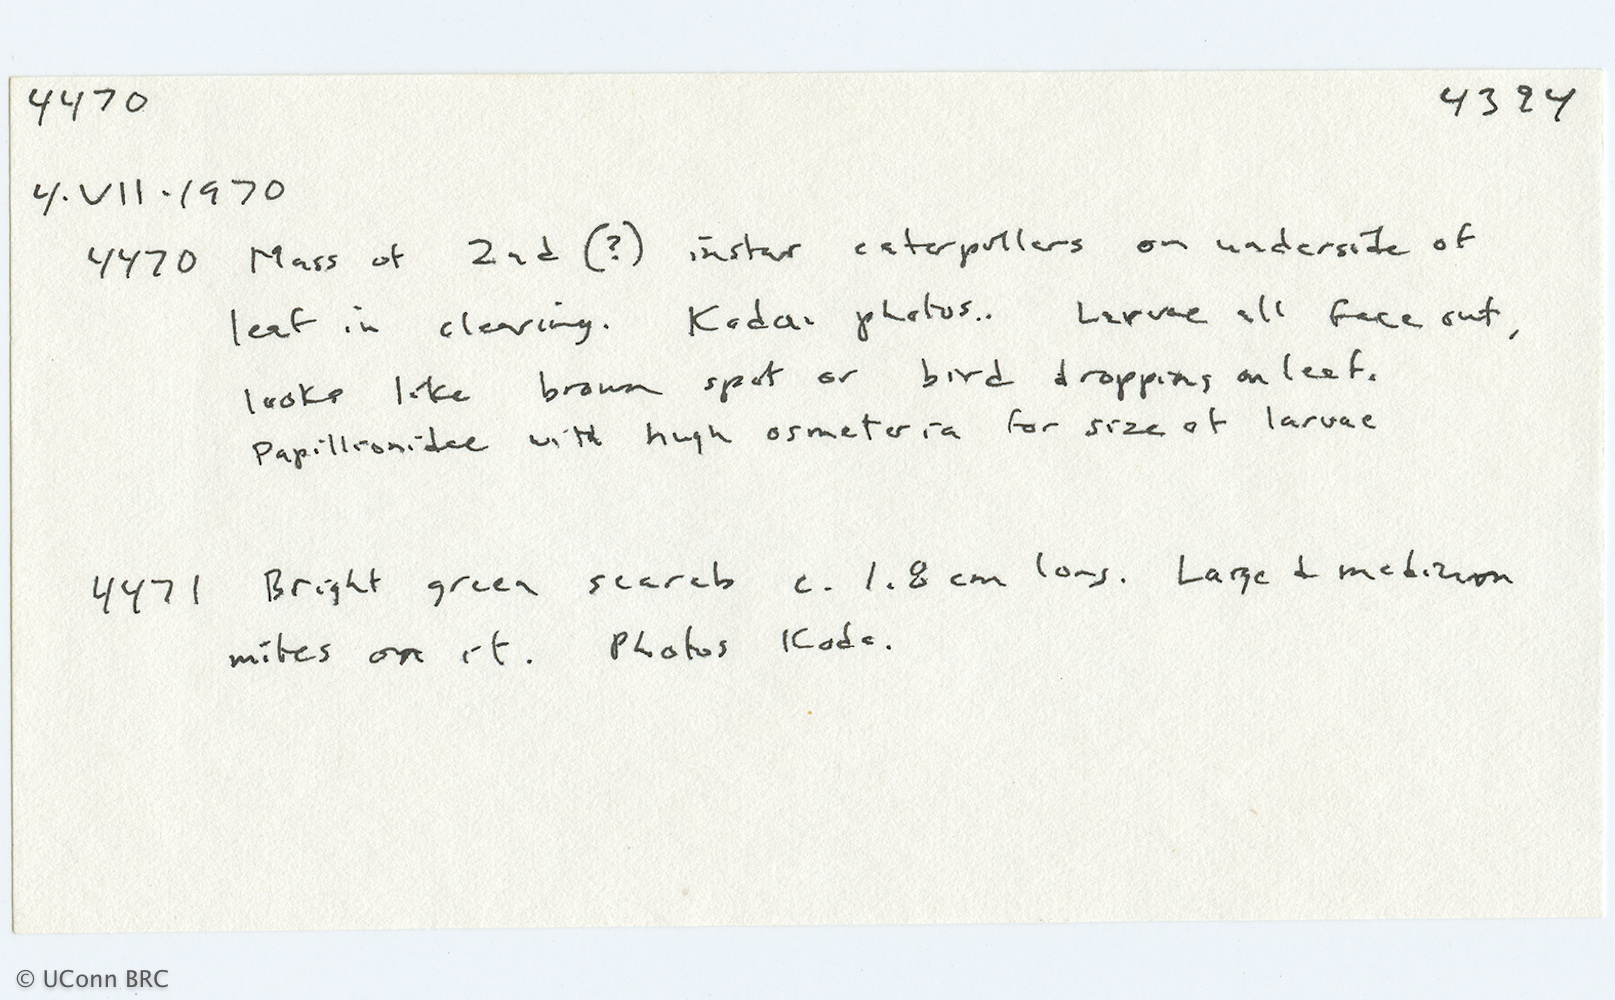 4470 4394
4.VII.1970
4470 Mass of 2nd (?) instar caterpillers on underside of
leaf in clearing. Kodac photos.. Larvae all face out,
looks like brown spot or bird dropping on leaf.
Papillionidae with hugh osmeteria for size of larvae
4471 Bright green scarab c. 1.8 cm long. Large & medium
mites on it. Photos Koda.
© UConn BRC